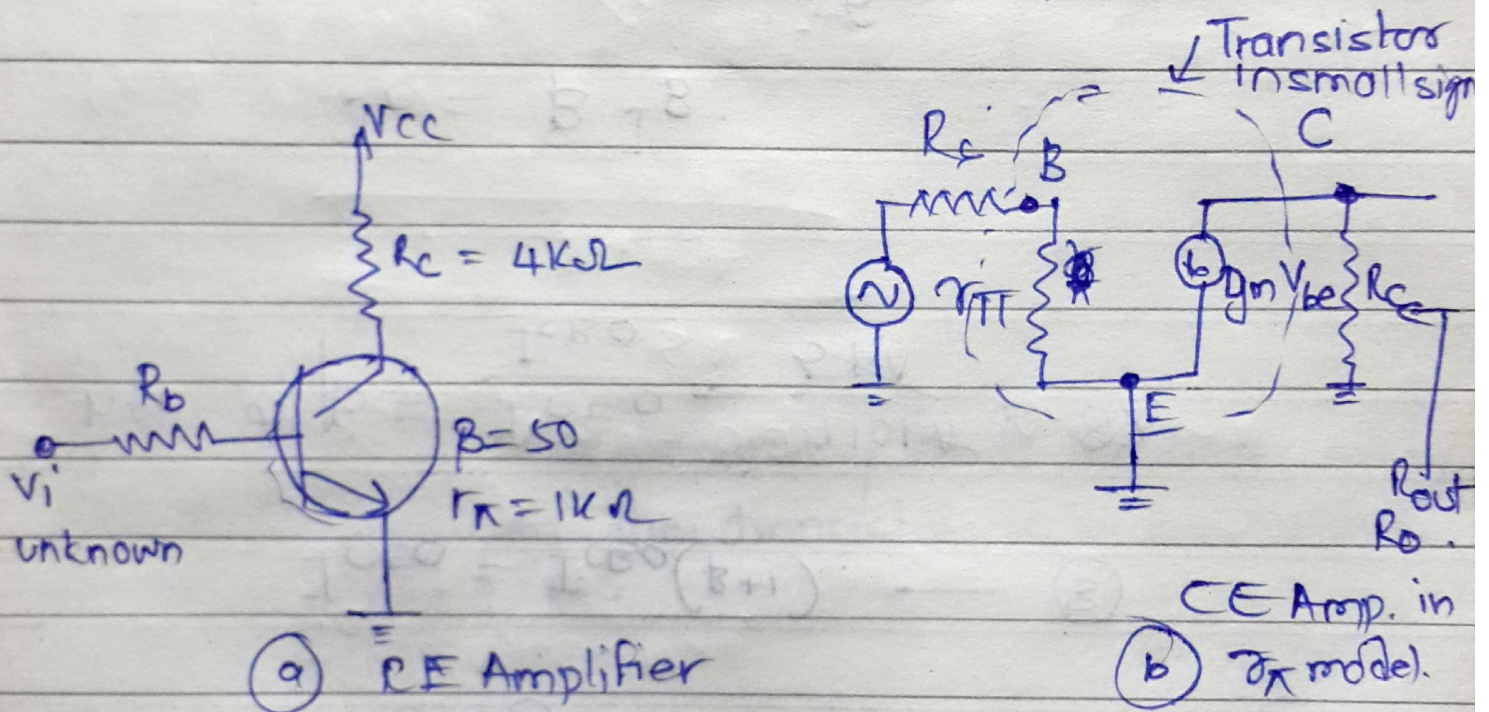 VCC
Rc = 4KΩ
Rb
Vi
unknown
β = 50
rπ = 1KΩ
a CE Amplifier
Transistor
insmallsign
Rc
B
C
rπ
gmVbe
Rc
E
Rout
Ro.
CE Amp. in
b rπ model.